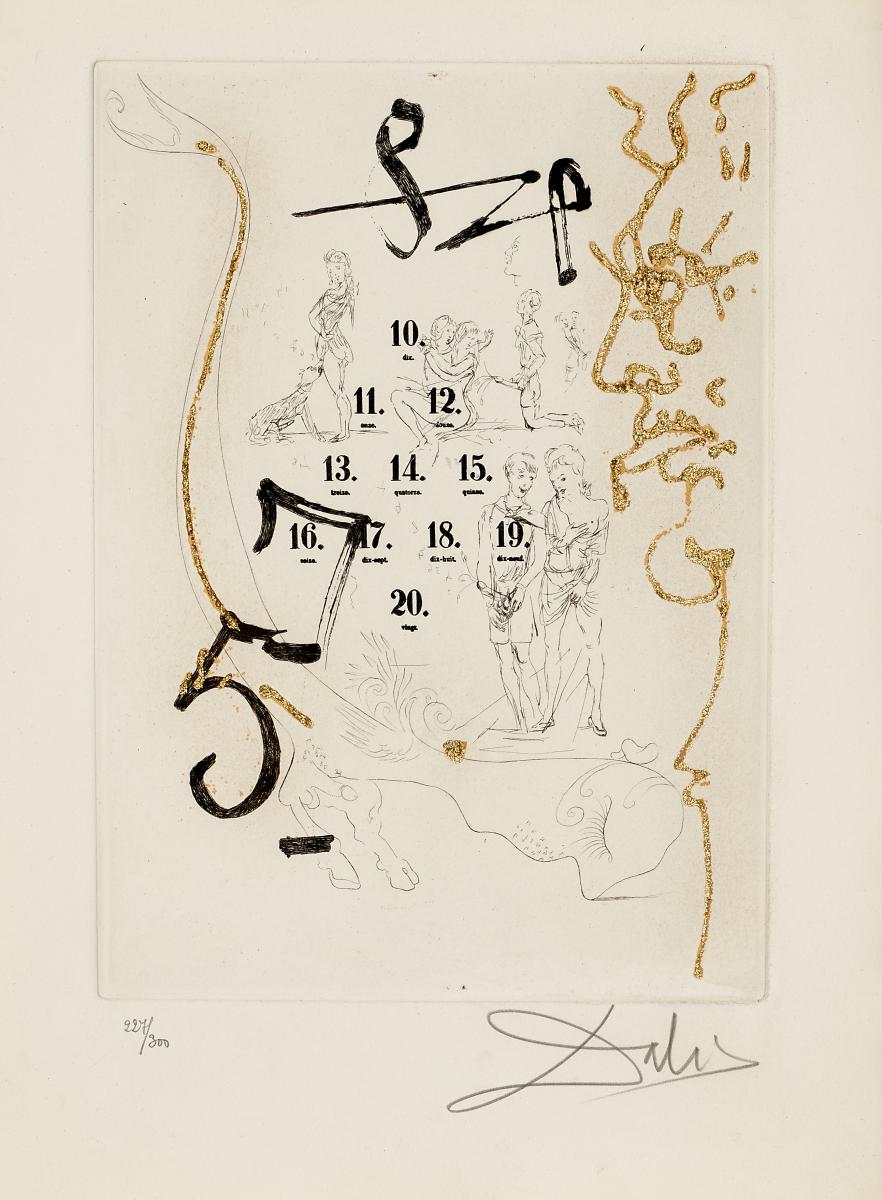 10.
dix.
11. 12.
onze. douze.
13. 14. 15.
treize. quatorze. quinze.
7
16. 17. 18. 19.
seize. dix-sept. dix-huit. dix-neuf.
20.
vingt.
5
227/300
Dalí